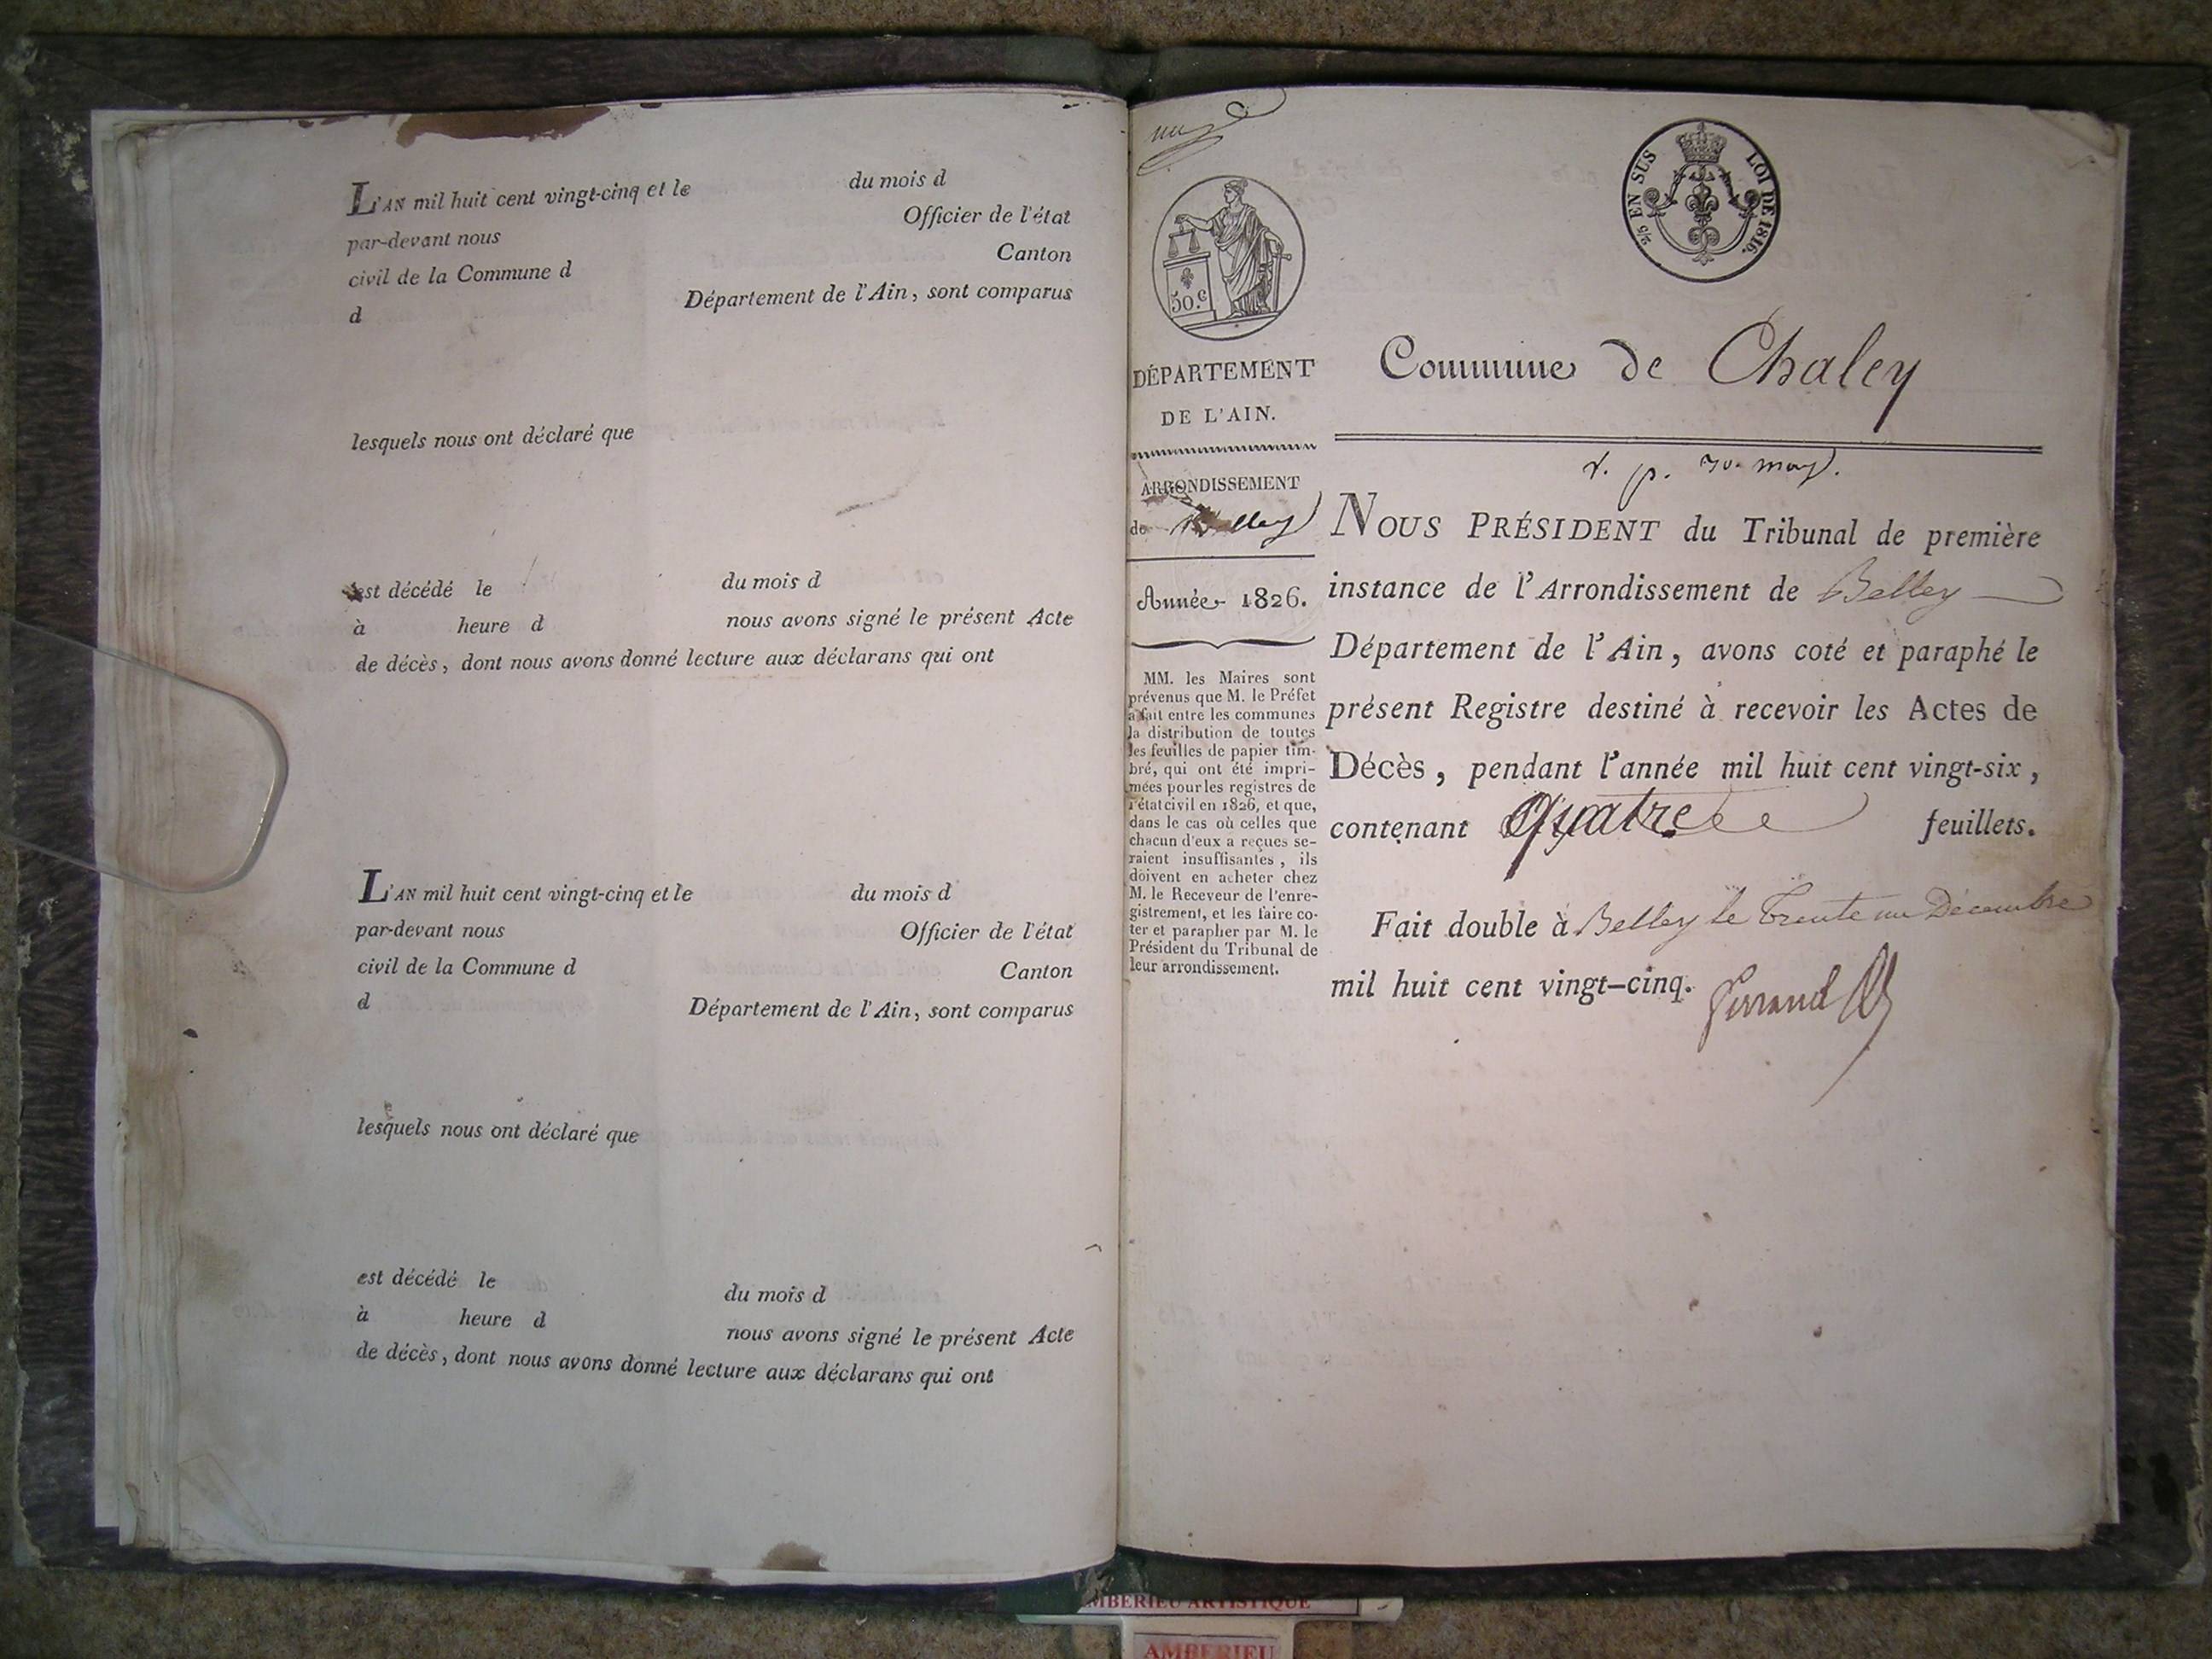 L'AN mil huit cent vingt-cinq et le du mois d
par-devant nous Officier de l'état
civil de la Commune d Canton
d Département de l'Ain, sont comparus
lesquels nous ont déclaré que
est décédé le du mois d
à heure d nous avons signé le présent Acte
de décès, dont nous avons donné lecture aux déclarans qui ont
L'AN mil huit cent vingt-cinq et le du mois d
par-devant nous Officier de l'état
civil de la Commune d Canton
d Département de l'Ain, sont comparus
lesquels nous ont déclaré que
est décédé le du mois d
à heure d nous avons signé le présent Acte
de décès, dont nous avons donné lecture aux déclarans qui ont
50.c
DÉPARTEMENT
DE L'AIN.
ARRONDISSEMENT
de Belley
Année 1826.
MM. les Maires sont
prévenus que M. le Préfet
a fait entre les communes
la distribution de toutes
les feuilles de papier tim-
bré, qui ont été impri-
mées pour les registres de
l'état civil en 1826, et que,
dans le cas où celles que
chacun d'eux a reçues se-
raient insuffisantes, ils
doivent en acheter chez
M. le Receveur de l'enre-
gistrement, et les faire co-
ter et parapher par M. le
Président du Tribunal de
leur arrondissement.
2/5 EN SUS LOI DE 1816.
Commune de Chaley
NOUS PRÉSIDENT du Tribunal de première
instance de l'Arrondissement de Belley
Département de l'Ain, avons coté et paraphé le
présent Registre destiné à recevoir les Actes de
Décès, pendant l'année mil huit cent vingt-six,
contenant quatre feuillets.
Fait double à Belley le trente un Décembre
mil huit cent vingt-cinq.
AMBERIEU ARTISTIQUE
AMBERIEU